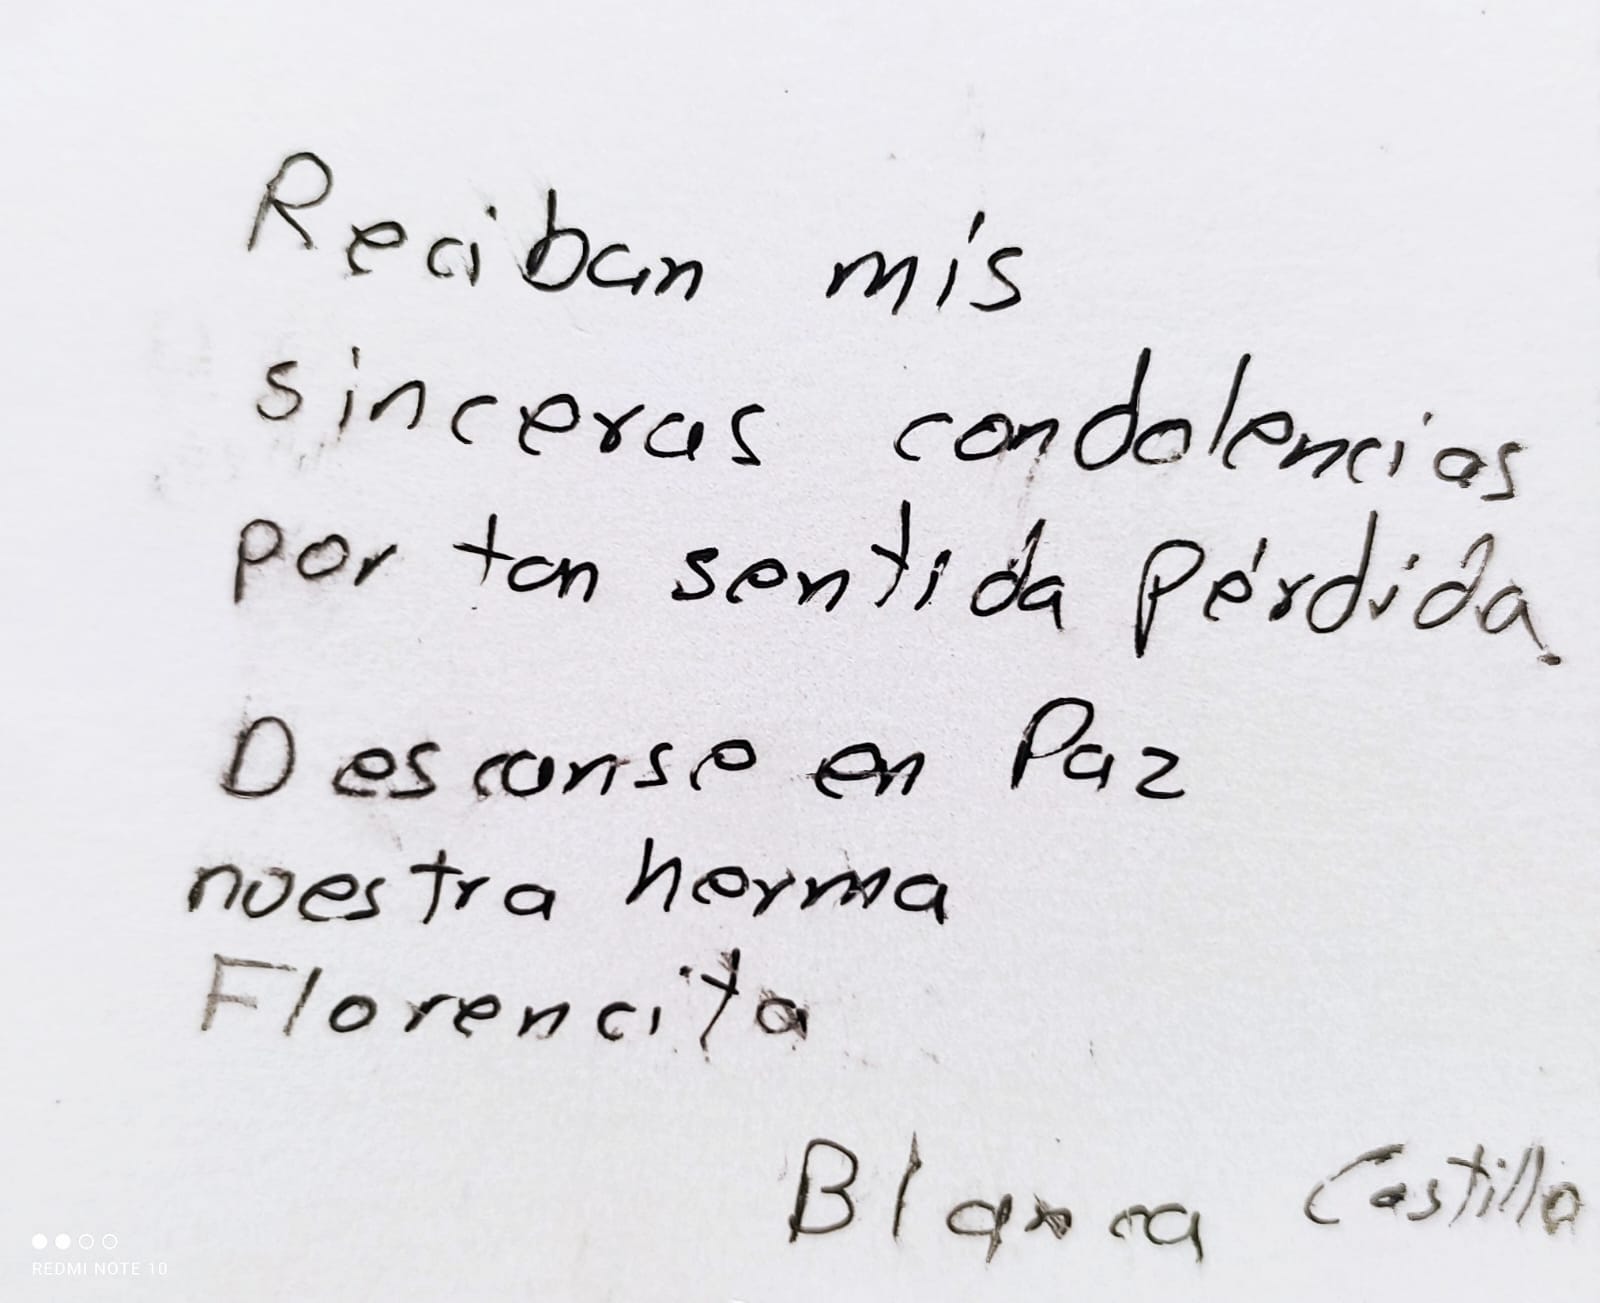 Reciban mis
sinceras condolencias
por tan sentida pérdida.
Descanse en Paz
nuestra herma
Florencita
Blanca Castillo
REDMI NOTE 10